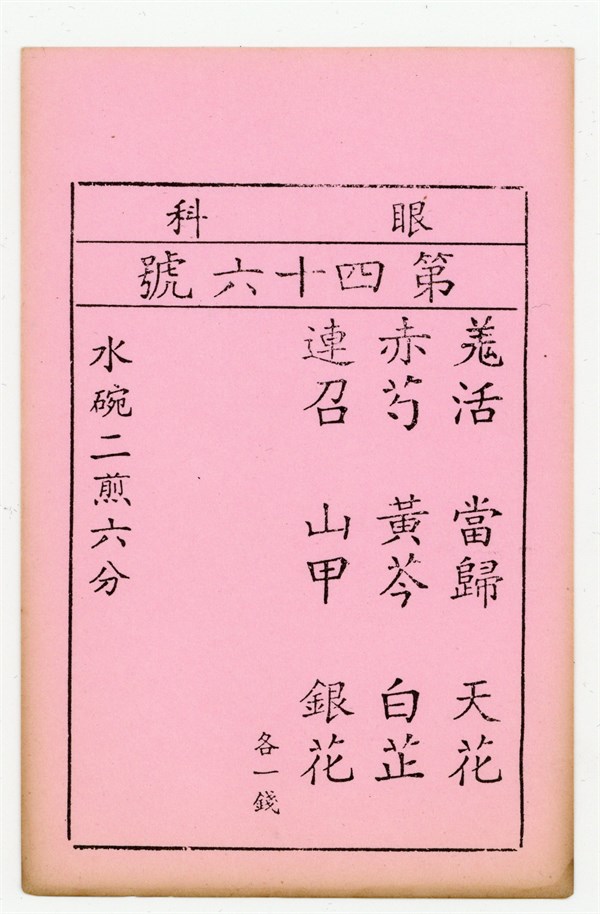 眼科
第四十六號
羗活 當歸 天花
赤芍 黃芩 白芷
連召 山甲 銀花
各一錢
水碗二煎六分